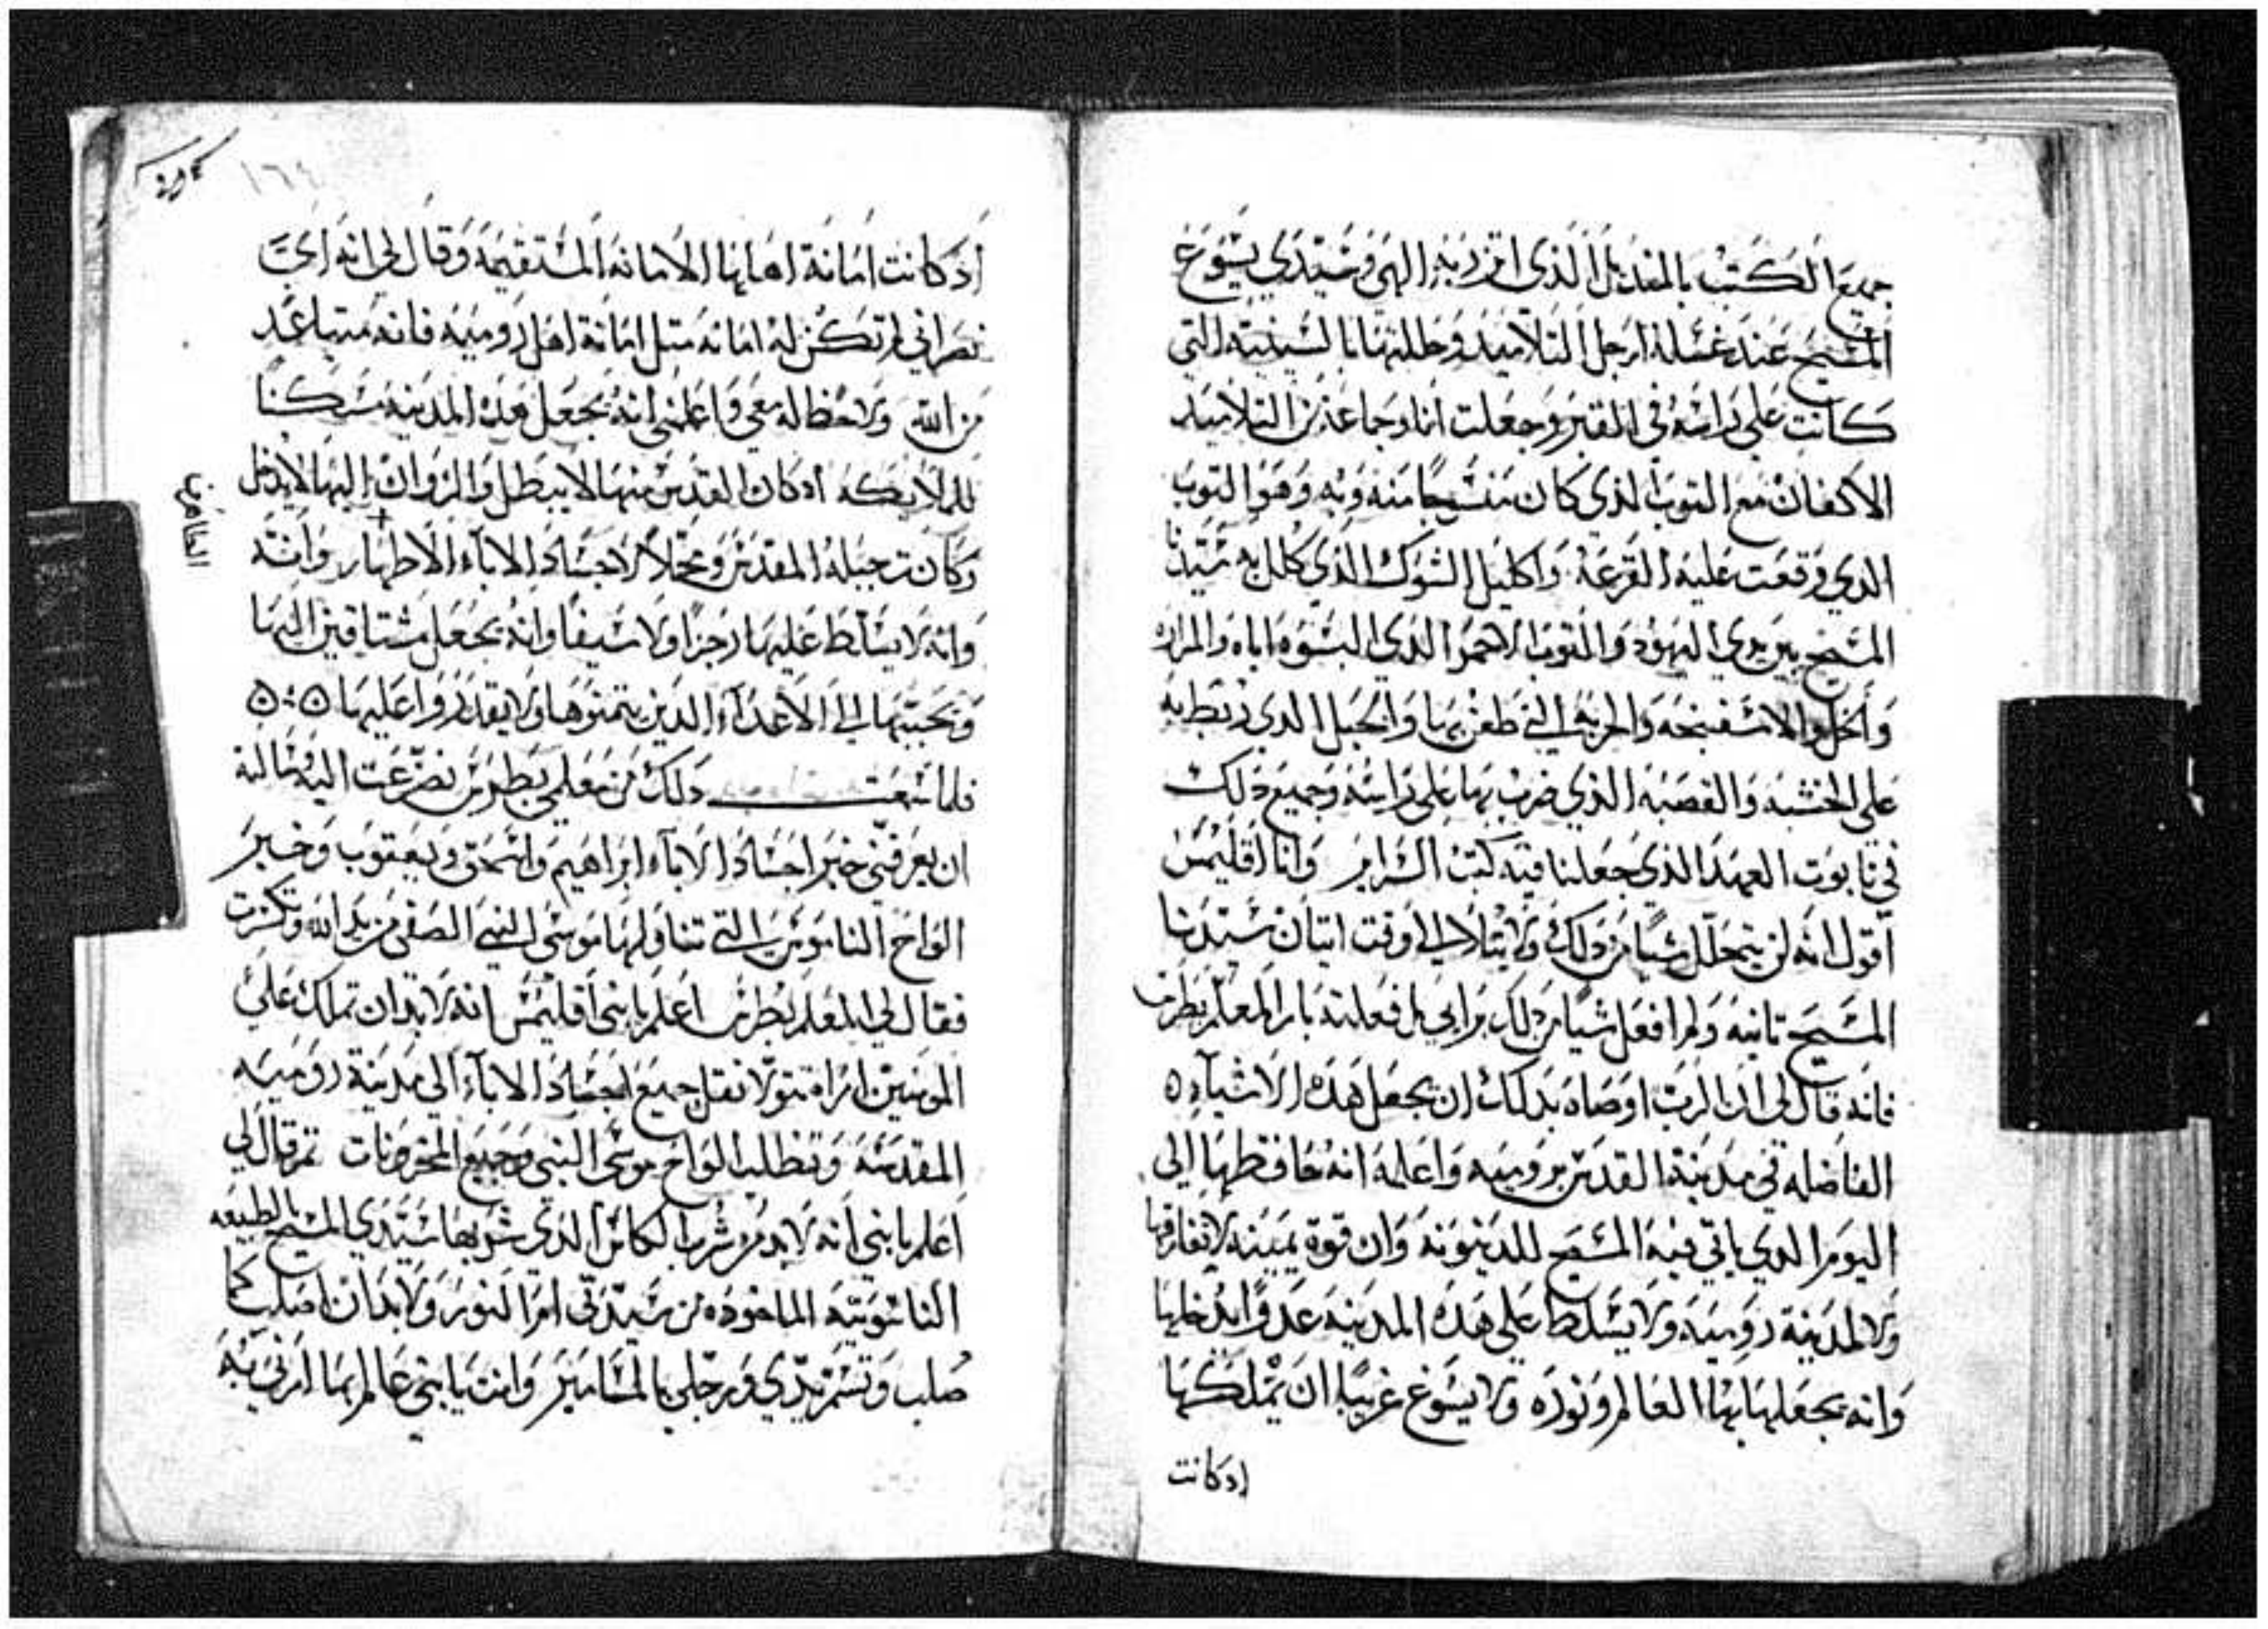 جميع الكتب بالمنديل الذي اتزر به الهي وسيدي يسوع
المسيح عند غسله ارجل التلاميد وجللتها بالسبنيه التي
كانت على راسه في القبر وجعلت انا وجماعة من التلاميد
الاكفان مع التوب الذي كان منسوجا منه وبه وهو التوب
الدي وقعت عليه القرعة واكليل الشوك الذي كلل به سيدنا
المسيح بين يدي اليهود والتوب الاحمر الدي البسوه اياه والمراره
والخل والاسفنجه والحربه التي طعن بها والحبل الدي ربط به
على الخشبه والقصبه الذي ضرب بها على راسه وجميع دلك
في تابوت العهد الذي جعلنا فيه كتب السراير وانا اقليمس
اقول انه لن يتحلل شيا من دلك ولا يبلا الى وقت اتيان سيدنا
المسيح تانيه ولم افعل شيا من دلك برايي بل فعلته بامر المعلم بطرس
فانه قال لي ان الرب اوصاه بدلك ان يجعل هده الاشياء
الفاضله في مدينة القديس بروميه واعلمه انه حافظها الى
اليوم الدي ياتي فيه المسيح للدينونه وان قوة يمينه لا تفارقها
ولا لمدينة روميه ولا يسلط على هده المدينه عدوا يدخلها
وانه يجعلها بها العالم ونوره ولا يسوغ غريبا ان يملكها
ادكانت
١٦٤
اد كانت امانة اهلها الامانه المستقيمه وقال لي انه اي
نصراني لم تكن له امانه متل امانة اهل روميه فانه متباعد
من الله ولا حظ له معي واعلمني انه يجعل هده المدينه مسكنا
للملايكه اد كان القدس منها لا يبطل والزوان اليها لا يدخل
وكانت جبله المقدس ومحلا لاجساد الاباء الاطهار وانه
وانه لا يسلط عليها رجزا ولا سيفا وانه يجعل مشتاقين اليها
ومحبيها الى الاعداء الدين يتمنوها ولا يقدروا عليها
فلما سمعت دلك من معلمي بطرس تضرعت اليه وسالته
ان يعرفني خبر اجساد الاباء ابراهيم واسحق ويعقوب وخبر
الواح الناموس التي تناولها موسى النبي الصفي من يد الله وتكررت
فقال لي المعلم بطرس اعلم يا بني اقليمس انه لا بد ان تملك على
المومنين امراه تتولا نقل جميع اجساد الاباء الى مدينة روميه
المقدسه وتطلب الواح موسى النبي وجميع المخزونات تم قال لي
اعلم يا بني انه لا بد من شرب الكاس الدي شربها سيدي المسيح بالطبيعه
الناسوتيه الماخوده من سيدتي ام النور ولا بد ان اصلب كما
صلب وتسمر يدي ورجلي بالمسامير وانت يا بني عالم بما امرني به